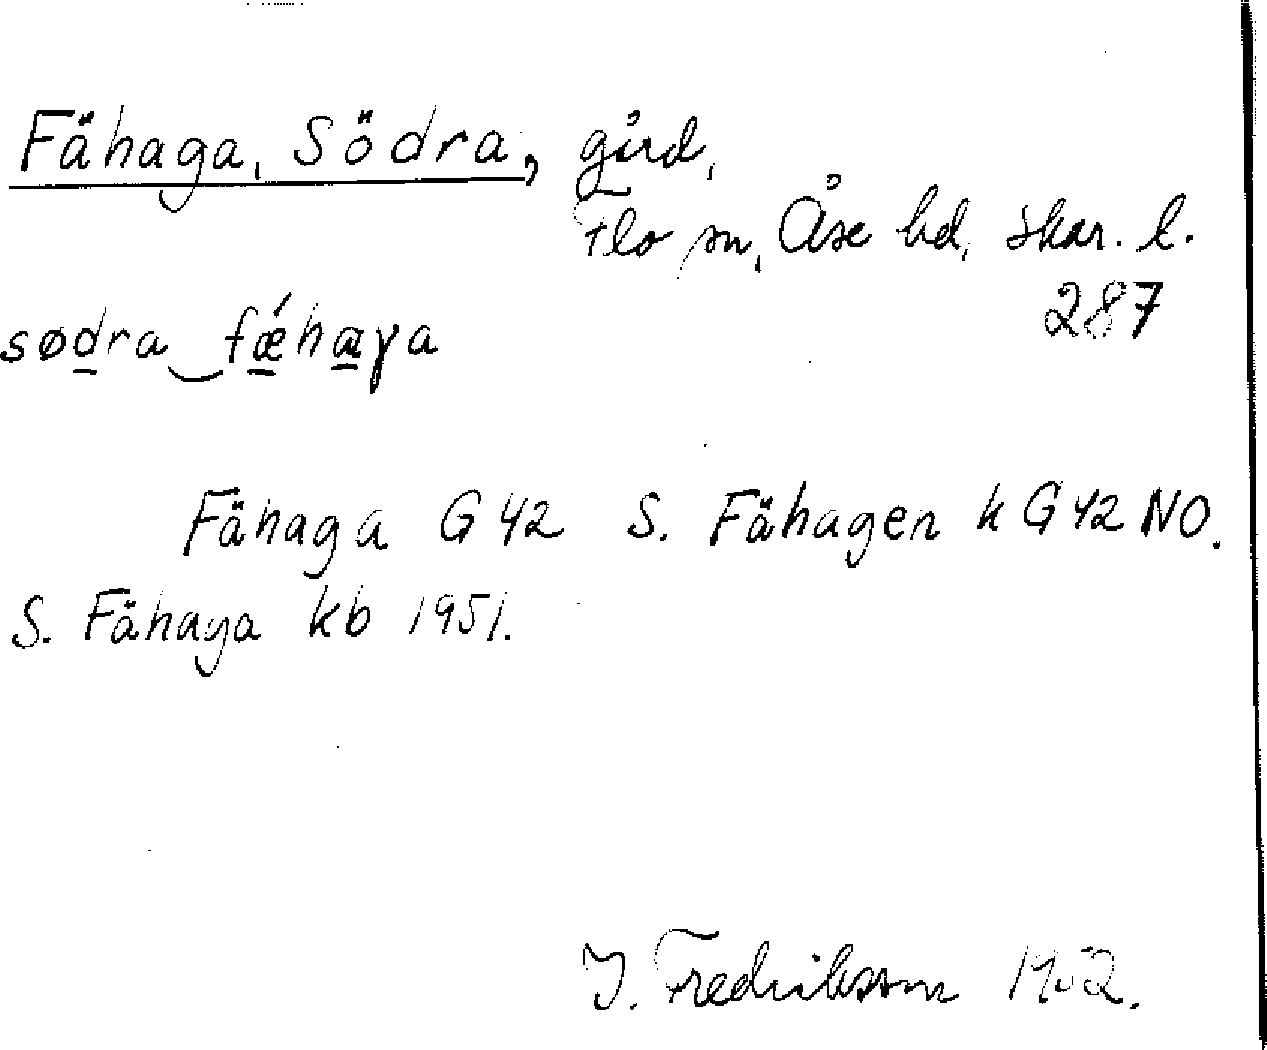 Fähaga, Södra, gård,
Flo sn, Åse hd, Skar. l.
287
sødra fǽhæγa
Fähaga G 42 S. Fähagen k G 42 NO.
S. Fähaga kb 1951.
J. Fredriksson 1952.